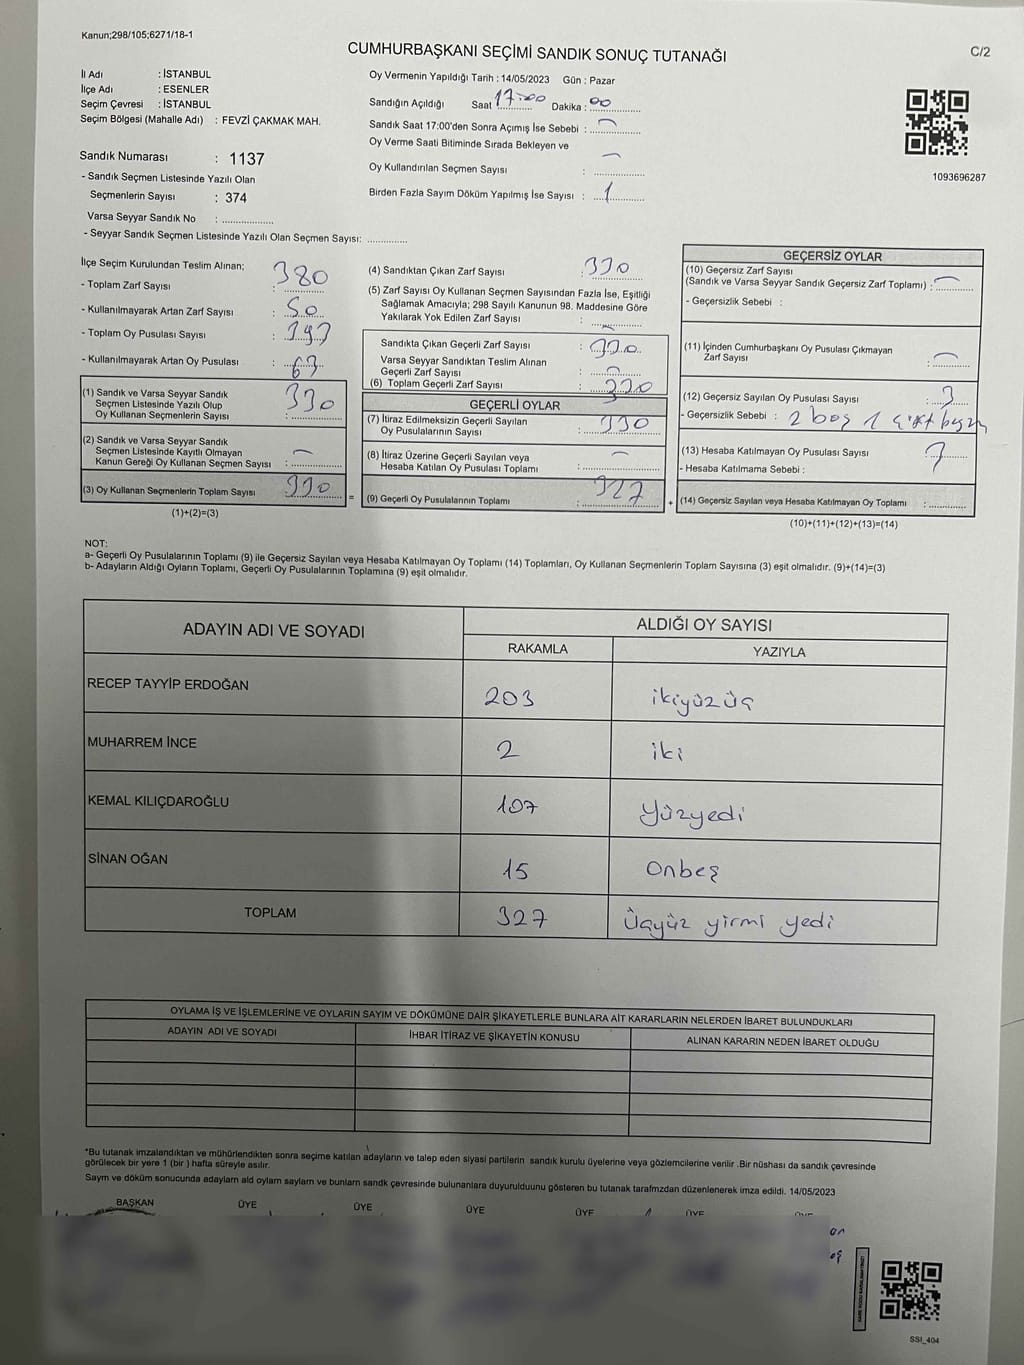 Kanun;298/105;6271/18-1
CUMHURBAŞKANI SEÇİMİ SANDIK SONUÇ TUTANAĞI
C/2
İl Adı : İSTANBUL
İlçe Adı : ESENLER
Seçim Çevresi : İSTANBUL
Seçim Bölgesi (Mahalle Adı) : FEVZİ ÇAKMAK MAH.
Sandık Numarası : 1137
- Sandık Seçmen Listesinde Yazılı Olan
Seçmenlerin Sayısı : 374
Varsa Seyyar Sandık No : ..................
- Seyyar Sandık Seçmen Listesinde Yazılı Olan Seçmen Sayısı: ..............
Oy Vermenin Yapıldığı Tarih : 14/05/2023 Gün : Pazar
Sandığın Açıldığı Saat 17:00 Dakika : 00
Sandık Saat 17:00'den Sonra Açımış İse Sebebi : —
Oy Verme Saati Bitiminde Sırada Bekleyen ve
Oy Kullandırılan Seçmen Sayısı : —
Birden Fazla Sayım Döküm Yapılmış İse Sayısı : 1
1093696287
İlçe Seçim Kurulundan Teslim Alınan;
- Toplam Zarf Sayısı : 380
- Kullanılmayarak Artan Zarf Sayısı : 50
- Toplam Oy Pusulası Sayısı :
- Kullanılmayarak Artan Oy Pusulası : 63
(1) Sandık ve Varsa Seyyar Sandık
Seçmen Listesinde Yazılı Olup
Oy Kullanan Seçmenlerin Sayısı : 330
(2) Sandık ve Varsa Seyyar Sandık
Seçmen Listesinde Kayıtlı Olmayan
Kanun Gereği Oy Kullanan Seçmen Sayısı : —
(3) Oy Kullanan Seçmenlerin Toplam Sayısı : 330 =
(1)+(2)=(3)
(4) Sandıktan Çıkan Zarf Sayısı : 330
(5) Zarf Sayısı Oy Kullanan Seçmen Sayısından Fazla İse, Eşitliği
Sağlamak Amacıyla; 298 Sayılı Kanunun 98. Maddesine Göre
Yakılarak Yok Edilen Zarf Sayısı : —
Sandıkta Çıkan Geçerli Zarf Sayısı : 330
Varsa Seyyar Sandıktan Teslim Alınan
Geçerli Zarf Sayısı : —
(6) Toplam Geçerli Zarf Sayısı : 330
GEÇERLİ OYLAR
(7) İtiraz Edilmeksizin Geçerli Sayılan
Oy Pusulalarının Sayısı : 330
(8) İtiraz Üzerine Geçerli Sayılan veya
Hesaba Katılan Oy Pusulası Toplamı : —
(9) Geçerli Oy Pusulalarının Toplamı : 327 +
GEÇERSİZ OYLAR
(10) Geçersiz Zarf Sayısı
(Sandık ve Varsa Seyyar Sandık Geçersiz Zarf Toplamı) : —
- Geçersizlik Sebebi :
(11) İçinden Cumhurbaşkanı Oy Pusulası Çıkmayan
Zarf Sayısı : —
(12) Geçersiz Sayılan Oy Pusulası Sayısı : 3
- Geçersizlik Sebebi : 2 boş 1 çift
(13) Hesaba Katılmayan Oy Pusulası Sayısı :
- Hesaba Katılmama Sebebi :
(14) Geçersiz Sayılan veya Hesaba Katılmayan Oy Toplamı : ............
(10)+(11)+(12)+(13)=(14)
NOT:
a- Geçerli Oy Pusulalarının Toplamı (9) ile Geçersiz Sayılan veya Hesaba Katılmayan Oy Toplamı (14) Toplamları, Oy Kullanan Seçmenlerin Toplam Sayısına (3) eşit olmalıdır. (9)+(14)=(3)
b- Adayların Aldığı Oyların Toplamı, Geçerli Oy Pusulalarının Toplamına (9) eşit olmalıdır.
ADAYIN ADI VE SOYADI
ALDIĞI OY SAYISI
RAKAMLA YAZIYLA
RECEP TAYYİP ERDOĞAN 203 ikiyüzüç
MUHARREM İNCE 2 iki
KEMAL KILIÇDAROĞLU 107 Yüzyedi
SİNAN OĞAN 15 Onbeş
TOPLAM 327 Üçyüz yirmi yedi
OYLAMA İŞ VE İŞLEMLERİNE VE OYLARIN SAYIM VE DÖKÜMÜNE DAİR ŞİKAYETLERLE BUNLARA AİT KARARLARIN NELERDEN İBARET BULUNDUKLARI
ADAYIN ADI VE SOYADI İHBAR İTİRAZ VE ŞİKAYETİN KONUSU ALINAN KARARIN NEDEN İBARET OLDUĞU
*Bu tutanak imzalandıktan ve mühürlendikten sonra seçime katılan adayların ve talep eden siyasi partilerin sandık kurulu üyelerine veya gözlemcilerine verilir .Bir nüshası da sandık çevresinde
görülecek bir yere 1 (bir ) hafta süreyle asılır.
Saym ve döküm sonucunda adaylarn ald oylarn saylarn ve bunlarn sandk çevresinde bulunanlara duyurulduunu gösteren bu tutanak tarafmzdan düzenlenerek imza edildi. 14/05/2023
BAŞKAN ÜYE ÜYE ÜYE ÜYE ÜYE
SSI_404